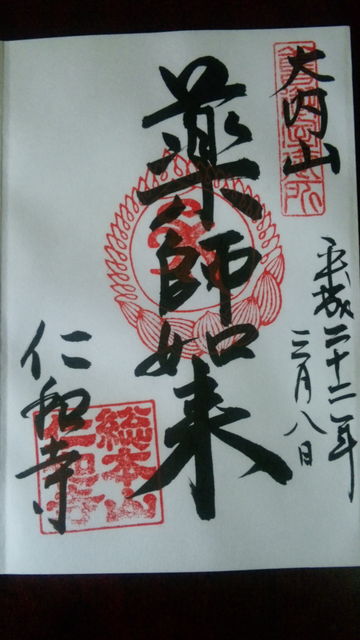 大内山
平成二十二年
三月八日
薬師如来
仁和寺
総本山
仁和寺